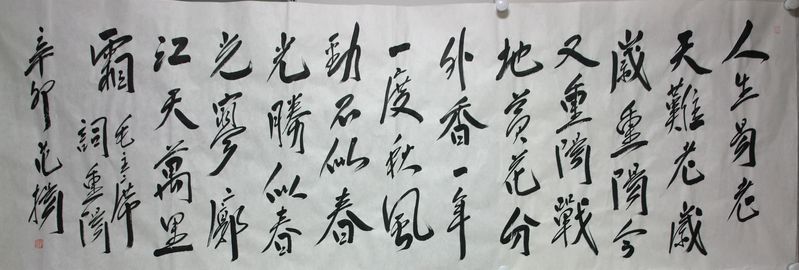 人生易老
天難老歲
歲重陽今
又重陽戰
地黃花分
外香一年
一度秋風
勁不似春
光勝似春
光寥廓
江天萬里
霜
毛主席
詞重陽
辛卯范